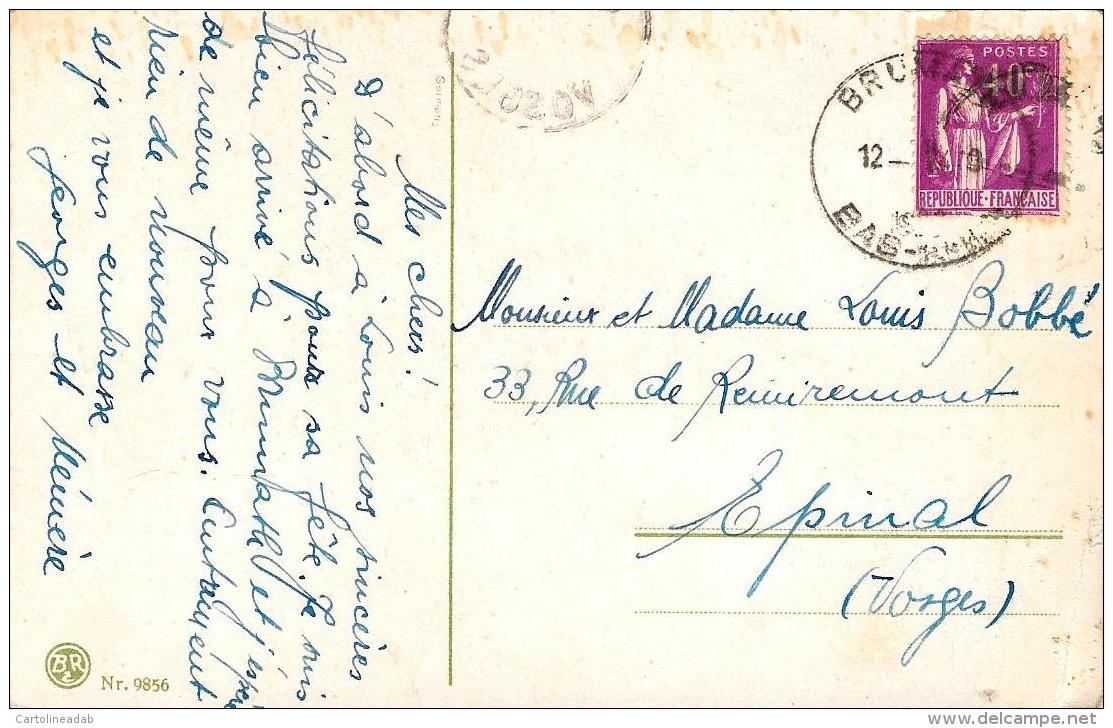 Mes chers!
D'abord à Louis nos sincères
félicitations pour sa fête. Je suis
bien arrivé à Brumath et j'espère
de même pour vous.
rien de nouveau
et je vous embrasse
Georges et Mémère
Germany
POSTES
40c
REPUBLIQUE · FRANÇAISE
12-
BAS-RHIN
Monsieur et Madame Louis Bobbé
33, Rue de Remiremont
Epinal
(Vosges)
BR
Nr. 9856
Cartolineadab
delcampe.net